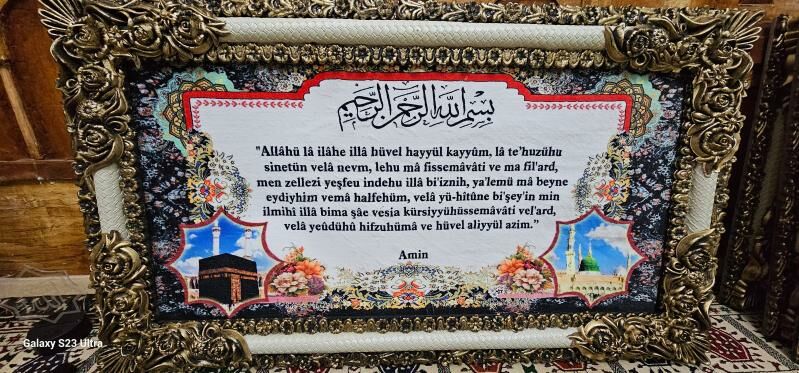 بسم الله الرحمن الرحيم
"Allâhü lâ ilâhe illâ hüvel hayyül kayyûm, lâ te'huzühu
sinetün velâ nevm, lehu mâ fissemâvâti ve ma fil'ard,
men zellezi yeşfeu indehu illâ bi'iznih, ya'lemü mâ beyne
eydiyhim vemâ halfehüm, velâ yü-hîtûne bi'şey'in min
ilmihî illâ bima şâe vesia kürsiyyühüssemâvâti vel'ard,
velâ yeûdühû hifzuhümâ ve hüvel aliyyül azim."
Amin
Galaxy S23 Ultra